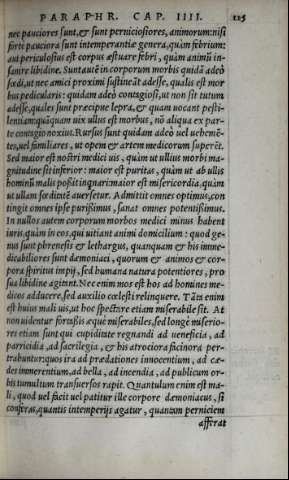 PARAPHR. CAP. IIII. 125
nec pauciores sunt, & sunt perniciosiores, animorum: nisi
forte pauciora sunt intemperantiæ genera, quàm febrium:
aut periculosius est corpus æstuare febri, quàm animũ in-
sanire libidine. Sunt autẽ in corporum morbis quidã adeò
fœdi, ut nec amici proximi sustineãt adesse, qualis est mor
bus pedicularis: quidam adeò contagiosi, ut non sit tutum
adesse, quales sunt præcipue lepra, & quam uocant pesti-
lentiam: quãquam uix ullus est morbus, nõ aliqua ex par-
te contagio noxius. Rursus sunt quidam adeò uel uehemẽ-
tes, uel familiares, ut opem & artem medicorum superẽt.
Sed maior est nostri medici uis, quàm ut ullius morbi ma-
gnitudine sit inferior: maior est puritas, quàm ut ab ullis
hominũ malis possit inquinari: maior est misericordia, quàm
ut ullam sorditiẽ auersetur. Admittit omnes optimus, con
tingit omnes ipse purissimus, sanat omnes potentissimus.
In nullos autem corporum morbos medici minus habent
iuris, quàm in eos, qui uitiant animi domicilium: quod ge-
nus sunt phrenesis & lethargus, quanquam & his imme-
dicabiliores sunt dæmoniaci, quorum & animos & cor-
pora spiritus impij, sed humana natura potentiores, pro
sua libidine agitant. Nec enim mos est hos ad homines me-
dicos adducere, sed auxilio cœlesti relinquere. Tam enim
est huius mali uis, ut hoc spectare etiam miserabile sit. At
non uidentur fortassis æquè miserabiles, sed longè miserio-
res etiam sunt qui cupiditate regnandi ad ueneficia, ad
parricidia, ad sacrilegia, & his atrociora facinora per-
trahuntur: quos ira ad prædationes innocentium, ad cæ-
des immerentium, ad bella, ad incendia, ad publicum or-
bis tumultum transuersos rapit. Quantulum enim est ma-
li, quod uel facit uel patitur ille corpore dæmoniacus, si
conferas, quantis intemperijs agatur, quantam perniciem
afferat